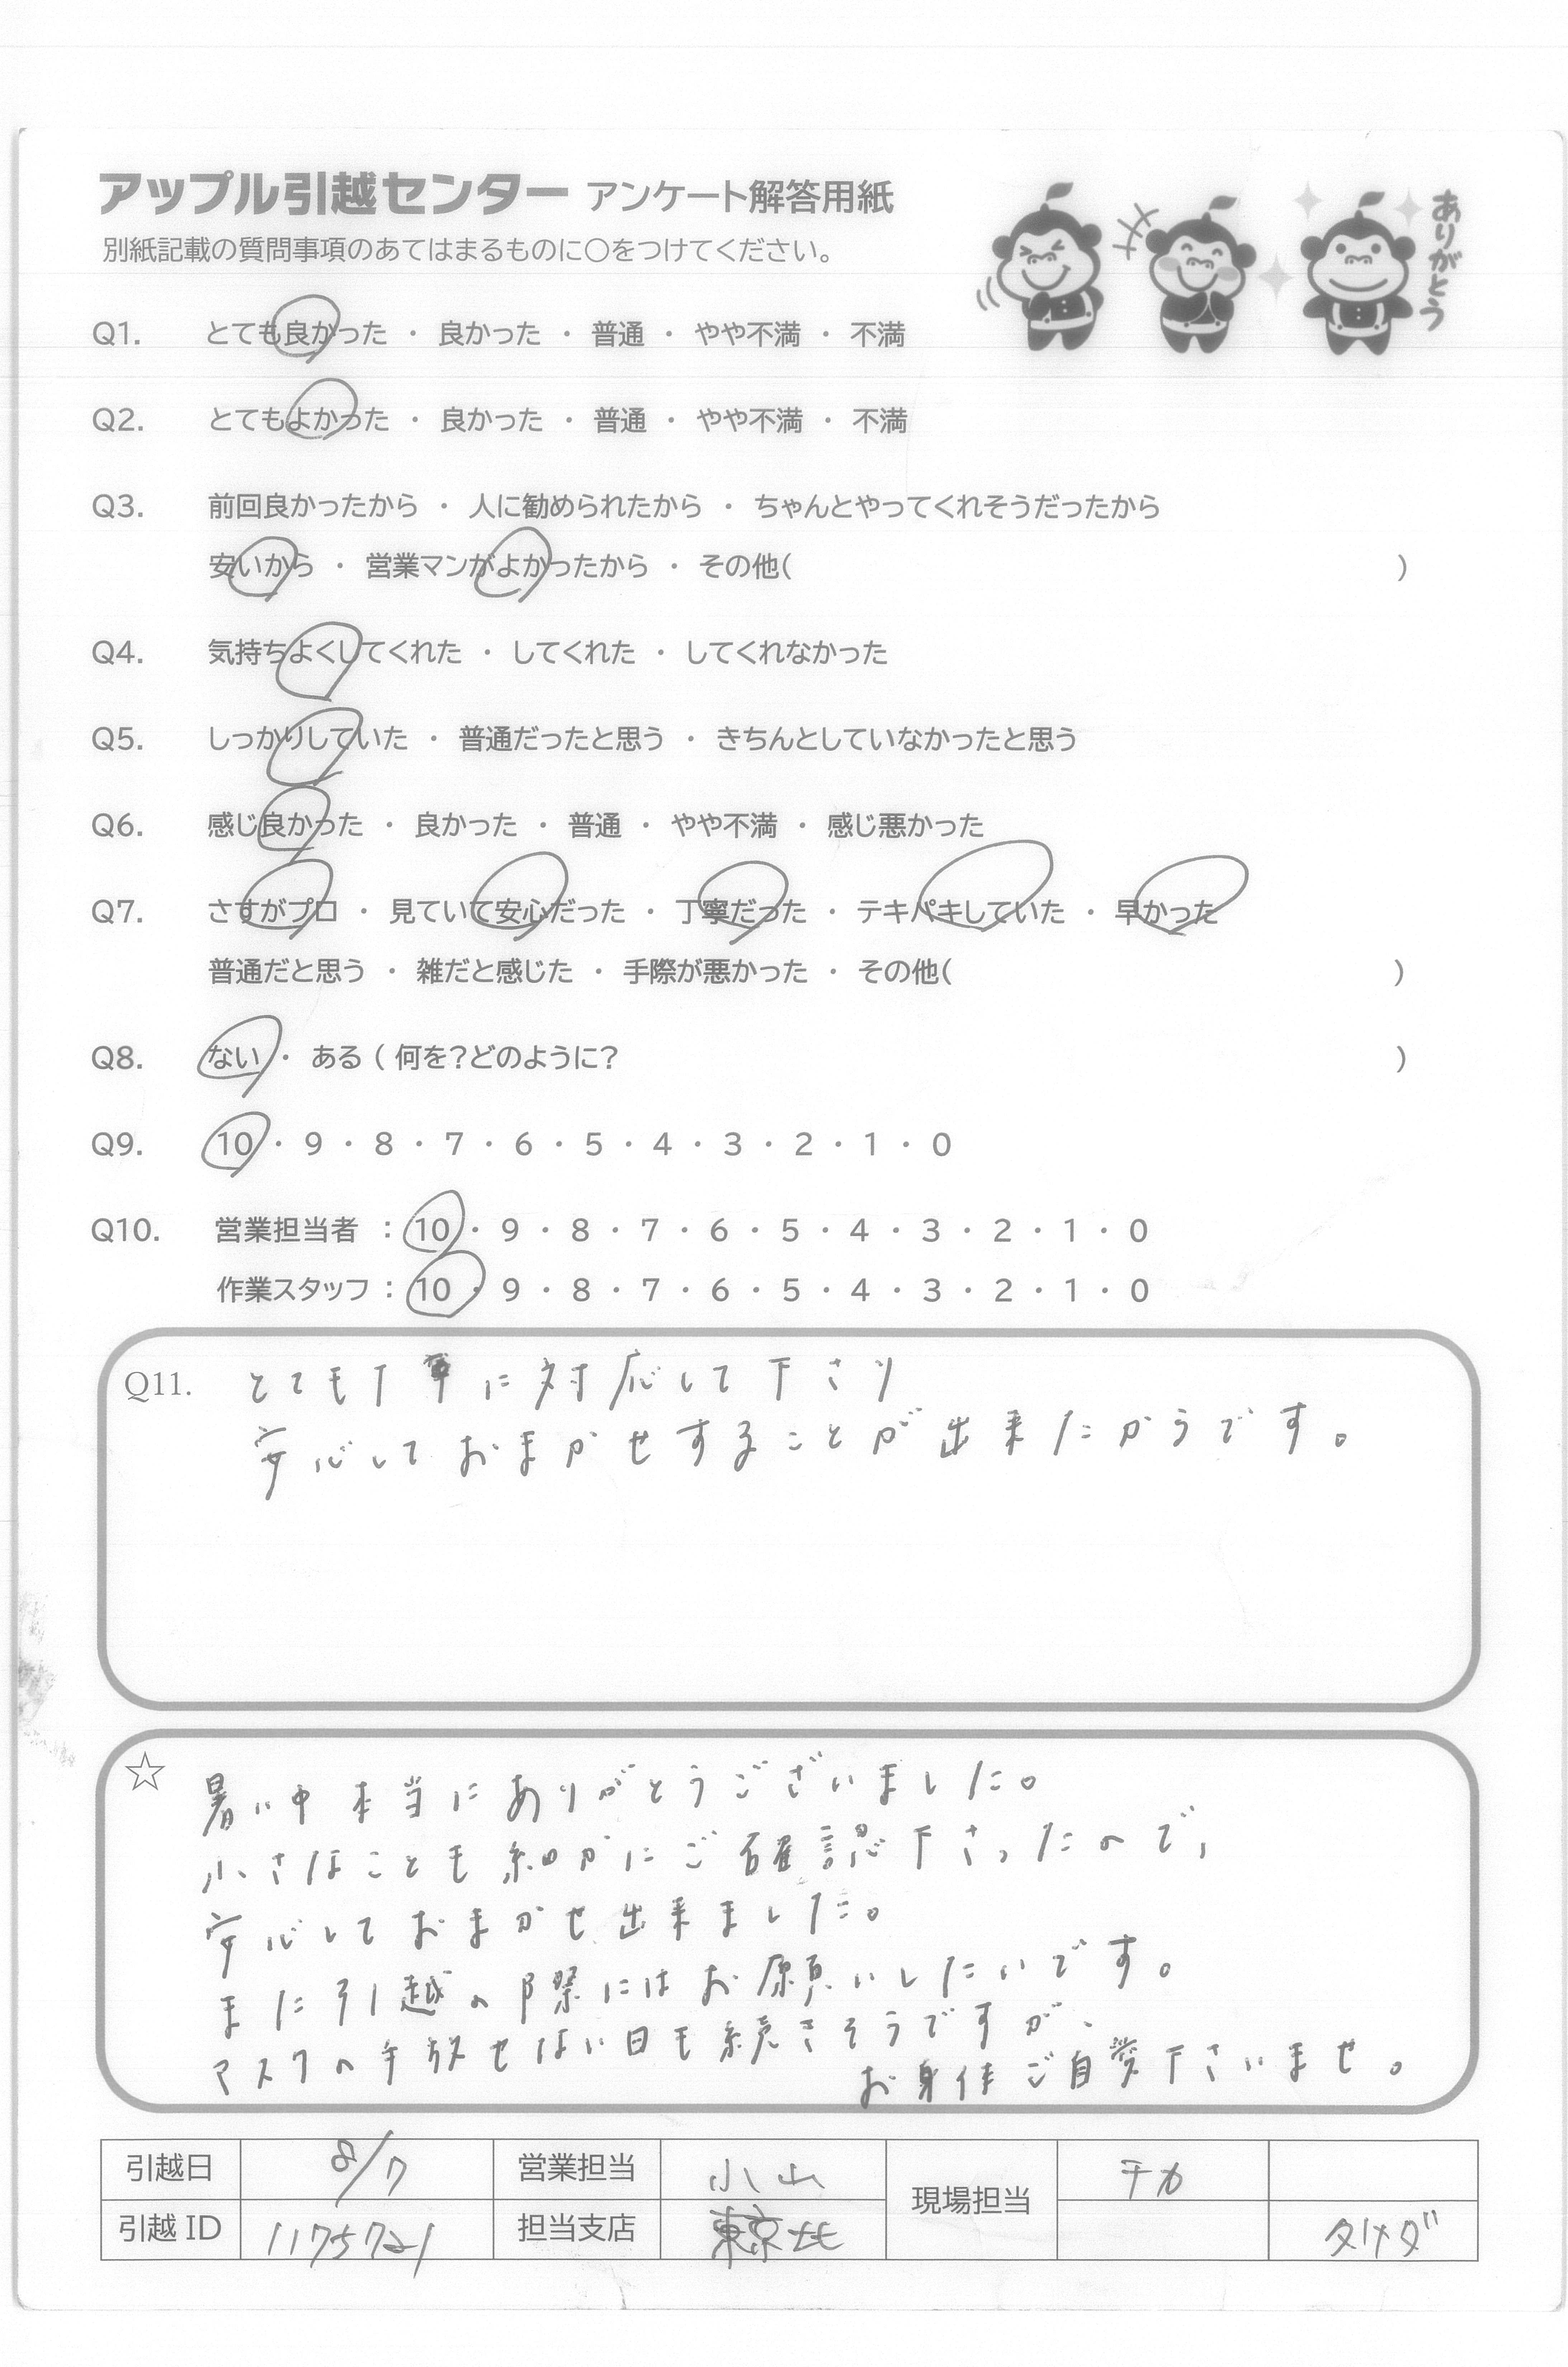 アップル引越センター アンケート解答用紙
ありがとう
別紙記載の質問事項のあてはまるものに○をつけてください。
Q1. とても良かった ・ 良かった ・ 普通 ・ やや不満 ・ 不満
Q2. とてもよかった ・ 良かった ・ 普通 ・ やや不満 ・ 不満
Q3. 前回良かったから ・ 人に勧められたから ・ ちゃんとやってくれそうだったから
安いから ・ 営業マンがよかったから ・ その他( )
Q4. 気持ちよくしてくれた ・ してくれた ・ してくれなかった
Q5. しっかりしていた ・ 普通だったと思う ・ きちんとしていなかったと思う
Q6. 感じ良かった ・ 良かった ・ 普通 ・ やや不満 ・ 感じ悪かった
Q7. さすがプロ ・ 見ていて安心だった ・ 丁寧だった ・ テキパキしていた ・ 早かった
普通だと思う ・ 雑だと感じた ・ 手際が悪かった ・ その他( )
Q8. ない ・ ある ( 何を?どのように? )
Q9. 10 ・ 9 ・ 8 ・ 7 ・ 6 ・ 5 ・ 4 ・ 3 ・ 2 ・ 1 ・ 0
Q10. 営業担当者 : 10 ・ 9 ・ 8 ・ 7 ・ 6 ・ 5 ・ 4 ・ 3 ・ 2 ・ 1 ・ 0
作業スタッフ : 10 ・ 9 ・ 8 ・ 7 ・ 6 ・ 5 ・ 4 ・ 3 ・ 2 ・ 1 ・ 0
Q11. とても丁寧に対応して下さり
安心しておまかせすることが出来たからです。
☆ 暑い中本当にありがとうございました。
小さなことも細かにご確認下さったので、
安心しておまかせ出来ました。
また引越の際にはお願いしたいです。
マスクの手放せない日も続きそうですが、
お身体ご自愛下さいませ。
引越日 8/7 営業担当 小山 現場担当 チカ
引越ID 1175721 担当支店 東京北 タケダ